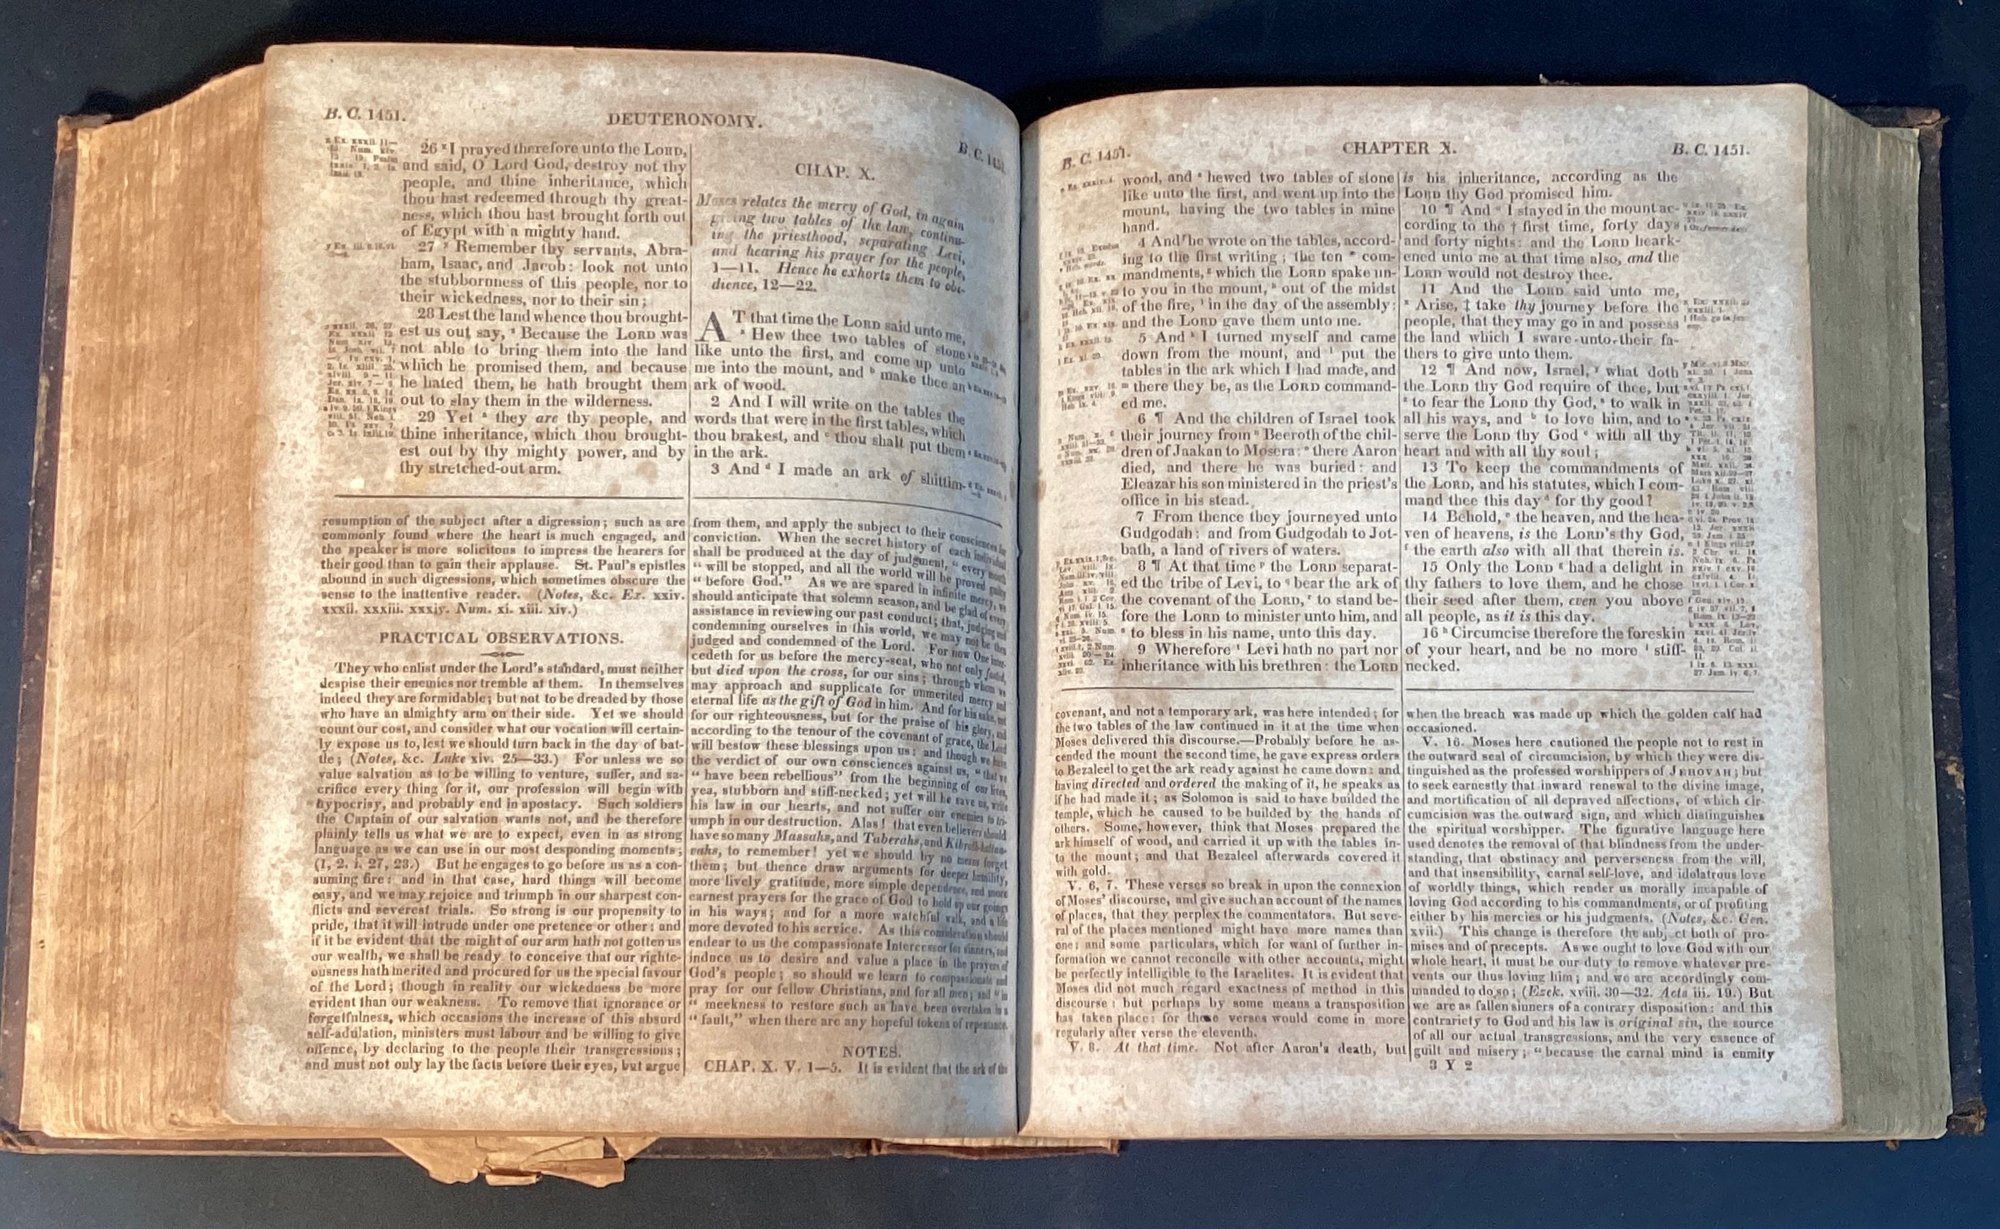 B. C. 1451.
DEUTERONOMY.
B. C. 1451.
26 I prayed therefore unto the LORD,
and said, O Lord God, destroy not thy
people, and thine inheritance, which
thou hast redeemed through thy great-
ness, which thou hast brought forth out
of Egypt with a mighty hand.
27 Remember thy servants, Abra-
ham, Isaac, and Jacob: look not unto
the stubbornness of this people, nor to
their wickedness, nor to their sin;
28 Lest the land whence thou brought-
est us out say, Because the LORD was
not able to bring them into the land
which he promised them, and because
he hated them, he hath brought them
out to slay them in the wilderness.
29 Yet they are thy people, and
thine inheritance, which thou brought-
est out by thy mighty power, and by
thy stretched-out arm.
CHAP. X.
Moses relates the mercy of God, in again
giving two tables of the law, continu-
ing the priesthood, separating Levi,
and hearing his prayer for the people,
1—11. Hence he exhorts them to obe-
dience, 12—22.
AT that time the LORD said unto me,
Hew thee two tables of stone
like unto the first, and come up unto
me into the mount, and make thee an
ark of wood.
2 And I will write on the tables the
words that were in the first tables, which
thou brakest, and thou shalt put them
in the ark.
3 And I made an ark of shittim-
resumption of the subject after a digression; such as are
commonly found where the heart is much engaged, and
the speaker is more solicitous to impress the hearers for
their good than to gain their applause. St. Paul's epistles
abound in such digressions, which sometimes obscure the
sense to the inattentive reader. (Notes, &c. Ex. xxiv.
xxxii. xxxiii. xxxiv. Num. xi. xiii. xiv.)
PRACTICAL OBSERVATIONS.
They who enlist under the Lord's standard, must neither
despise their enemies nor tremble at them. In themselves
indeed they are formidable; but not to be dreaded by those
who have an almighty arm on their side. Yet we should
count our cost, and consider what our vocation will certain-
ly expose us to, lest we should turn back in the day of bat-
tle; (Notes, &c. Luke xiv. 25—33.) For unless we so
value salvation as to be willing to venture, suffer, and sa-
crifice every thing for it, our profession will begin with
hypocrisy, and probably end in apostacy. Such soldiers
the Captain of our salvation wants not, and he therefore
plainly tells us what we are to expect, even in as strong
language as we can use in our most desponding moments;
(1, 2. i. 27, 28.) But he engages to go before us as a con-
suming fire: and in that case, hard things will become
easy, and we may rejoice and triumph in our sharpest con-
flicts and severest trials. So strong is our propensity to
pride, that it will intrude under one pretence or other: and
if it be evident that the might of our arm hath not gotten us
our wealth, we shall be ready to conceive that our righte-
ousness hath merited and procured for us the special favour
of the Lord; though in reality our wickedness be more
evident than our weakness. To remove that ignorance or
forgetfulness, which occasions the increase of this absurd
self-adulation, ministers must labour and be willing to give
offence, by declaring to the people their transgressions;
and must not only lay the facts before their eyes, but argue
from them, and apply the subject to their consciences for
conviction. When the secret history of each individual
shall be produced at the day of judgment, "every mouth
"will be stopped, and all the world will be proved guilty
"before God." As we are spared in infinite mercy, we
should anticipate that solemn season, and be glad of every
assistance in reviewing our past conduct; that, judging and
condemning ourselves in this world, we may not be then
judged and condemned of the Lord. For now One inter-
cedeth for us before the mercy-seat, who not only fasted,
but died upon the cross, for our sins; through whom we
may approach and supplicate for unmerited mercy and
eternal life as the gift of God in him. And for his sake, not
for our righteousness, but for the praise of his glory, and
according to the tenour of the covenant of grace, the Lord
will bestow these blessings upon us: and though we have
the verdict of our own consciences against us, "that we
"have been rebellious" from the beginning of our lives,
yea, stubborn and stiff-necked; yet will he save us, write
his law in our hearts, and not suffer our enemies to tri-
umph in our destruction. Alas! that even believers should
have so many Massahs, and Taberahs, and Kibroth-hattaa-
vahs, to remember! yet we should by no means forget
them; but thence draw arguments for deeper humility,
more lively gratitude, more simple dependence, and more
earnest prayers for the grace of God to hold up our goings
in his ways; and for a more watchful walk, and a life
more devoted to his service. As this consideration should
endear to us the compassionate Intercessor for sinners, and
induce us to desire and value a place in the prayers of
God's people; so should we learn to compassionate and
pray for our fellow Christians, and for all men; and "in
"meekness to restore such as have been overtaken in a
"fault," when there are any hopeful tokens of repentance.
NOTES.
CHAP. X. V. 1—5. It is evident that the ark of the
B. C. 1451.
CHAPTER X.
B. C. 1451.
wood, and hewed two tables of stone
like unto the first, and went up into the
mount, having the two tables in mine
hand.
4 And he wrote on the tables, accord-
ing to the first writing; the ten com-
mandments, which the LORD spake un-
to you in the mount, out of the midst
of the fire, in the day of the assembly:
and the LORD gave them unto me.
5 And I turned myself and came
down from the mount, and put the
tables in the ark which I had made, and
there they be, as the LORD command-
ed me.
6 ¶ And the children of Israel took
their journey from Beeroth of the chil-
dren of Jaakan to Mosera: there Aaron
died, and there he was buried: and
Eleazar his son ministered in the priest's
office in his stead.
7 From thence they journeyed unto
Gudgodah: and from Gudgodah to Jot-
bath, a land of rivers of waters.
8 ¶ At that time the LORD separat-
ed the tribe of Levi, to bear the ark of
the covenant of the LORD, to stand be-
fore the LORD to minister unto him, and
to bless in his name, unto this day.
9 Wherefore Levi hath no part nor
inheritance with his brethren: the LORD
is his inheritance, according as the
LORD thy God promised him.
10 ¶ And I stayed in the mount ac-
cording to the † first time, forty days
and forty nights: and the LORD heark-
ened unto me at that time also, and the
LORD would not destroy thee.
11 And the LORD said unto me,
Arise, ‡ take thy journey before the
people, that they may go in and possess
the land which I sware unto their fa-
thers to give unto them.
12 ¶ And now, Israel, what doth
the LORD thy God require of thee, but
to fear the LORD thy God, to walk in
all his ways, and to love him, and to
serve the LORD thy God with all thy
heart and with all thy soul;
13 To keep the commandments of
the LORD, and his statutes, which I com-
mand thee this day for thy good?
14 Behold, the heaven, and the hea-
ven of heavens, is the LORD's thy God,
the earth also with all that therein is.
15 Only the LORD had a delight in
thy fathers to love them, and he chose
their seed after them, even you above
all people, as it is this day.
16 Circumcise therefore the foreskin
of your heart, and be no more stiff-
necked.
covenant, and not a temporary ark, was here intended; for
the two tables of the law continued in it at the time when
Moses delivered this discourse.—Probably before he as-
cended the mount the second time, he gave express orders
to Bezaleel to get the ark ready against he came down: and
having directed and ordered the making of it, he speaks as
if he had made it; as Solomon is said to have builded the
temple, which he caused to be builded by the hands of
others. Some, however, think that Moses prepared the
ark himself of wood, and carried it up with the tables in-
to the mount; and that Bezaleel afterwards covered it
with gold.
V. 6, 7. These verses so break in upon the connexion
of Moses' discourse, and give such an account of the names
of places, that they perplex the commentators. But seve-
ral of the places mentioned might have more names than
one: and some particulars, which for want of further in-
formation we cannot reconcile with other accounts, might
be perfectly intelligible to the Israelites. It is evident that
Moses did not much regard exactness of method in this
discourse: but perhaps by some means a transposition
has taken place: for these verses would come in more
regularly after verse the eleventh.
V. 8. At that time. Not after Aaron's death, but
when the breach was made up which the golden calf had
occasioned.
V. 16. Moses here cautioned the people not to rest in
the outward seal of circumcision, by which they were dis-
tinguished as the professed worshippers of JEHOVAH; but
to seek earnestly that inward renewal to the divine image,
and mortification of all depraved affections, of which cir-
cumcision was the outward sign, and which distinguishes
the spiritual worshipper. The figurative language here
used denotes the removal of that blindness from the under-
standing, that obstinacy and perverseness from the will,
and that insensibility, carnal self-love, and idolatrous love
of worldly things, which render us morally incapable of
loving God according to his commandments, or of profiting
either by his mercies or his judgments. (Notes, &c. Gen.
xvii.) This change is therefore the subject both of pro-
mises and of precepts. As we ought to love God with our
whole heart, it must be our duty to remove whatever pre-
vents our thus loving him; and we are accordingly com-
manded to do so; (Ezek. xviii. 30—32. Acts iii. 19.) But
we are as fallen sinners of a contrary disposition: and this
contrariety to God and his law is original sin, the source
of all our actual transgressions, and the very essence of
guilt and misery; "because the carnal mind is enmity
3 Y 2